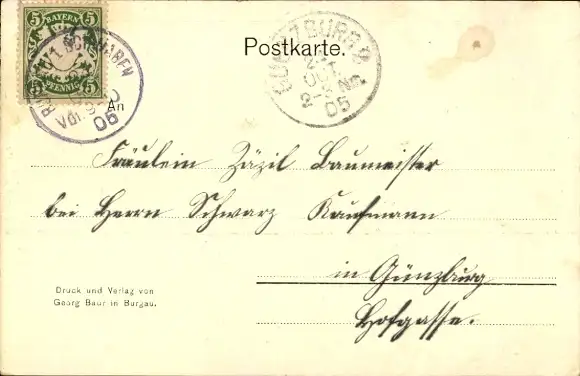 5 BAYERN 5
5 PFENNIG 5
Postkarte.
GUENZBURG 2
OCT.
05
05
An
Fräulein Zäzil Baumeister
bei Herrn Schwarz Kaufmann
in Günzburg
Hofgasse.
Druck und Verlag von
Georg Baur in Burgau.